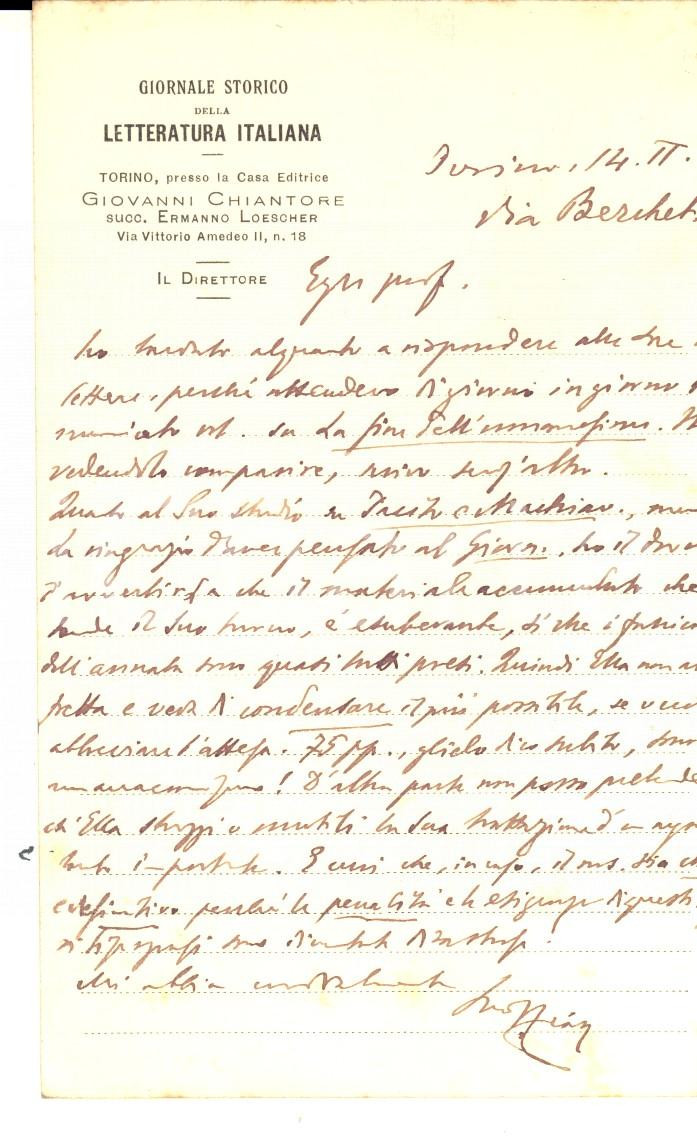 GIORNALE STORICO
DELLA
LETTERATURA ITALIANA
TORINO, presso la Casa Editrice
GIOVANNI CHIANTORE
SUCC. ERMANNO LOESCHER
Via Vittorio Amedeo II, n. 18
IL DIRETTORE
Torino, 14. II.
Via Berchet
Egr prof.
ho tardato alquanto a rispondere alle due
lettere, perché attendevo di giorno in giorno
art. su La fine dell'umanesimo.
vedendolo comparire, senz'altro.
Quanto al Suo studio su Tacito e Machiav.,
La ringrazio d'aver pensato al Giorn., ho il dovere
d'avvertirLa che il materiale accumulato che
il Suo turno, è esuberante, sì che i fascicoli
dell'annata sono quasi tutti presi. Quindi Ella non
fretta e veda di condensare il più possibile, se vuol
abbreviare l'attesa. 75 pp., glielo dico subito, sono
! D'altra parte non posso pretendere
ch'Ella strozzi o mutili la sua trattazione d'un
tanto importante. E che, in caso, il ms. sia
definitivo perché le penalità e le esigenze di questi
tipografi sono diventate disastrose.
Mi abbia cordialmente